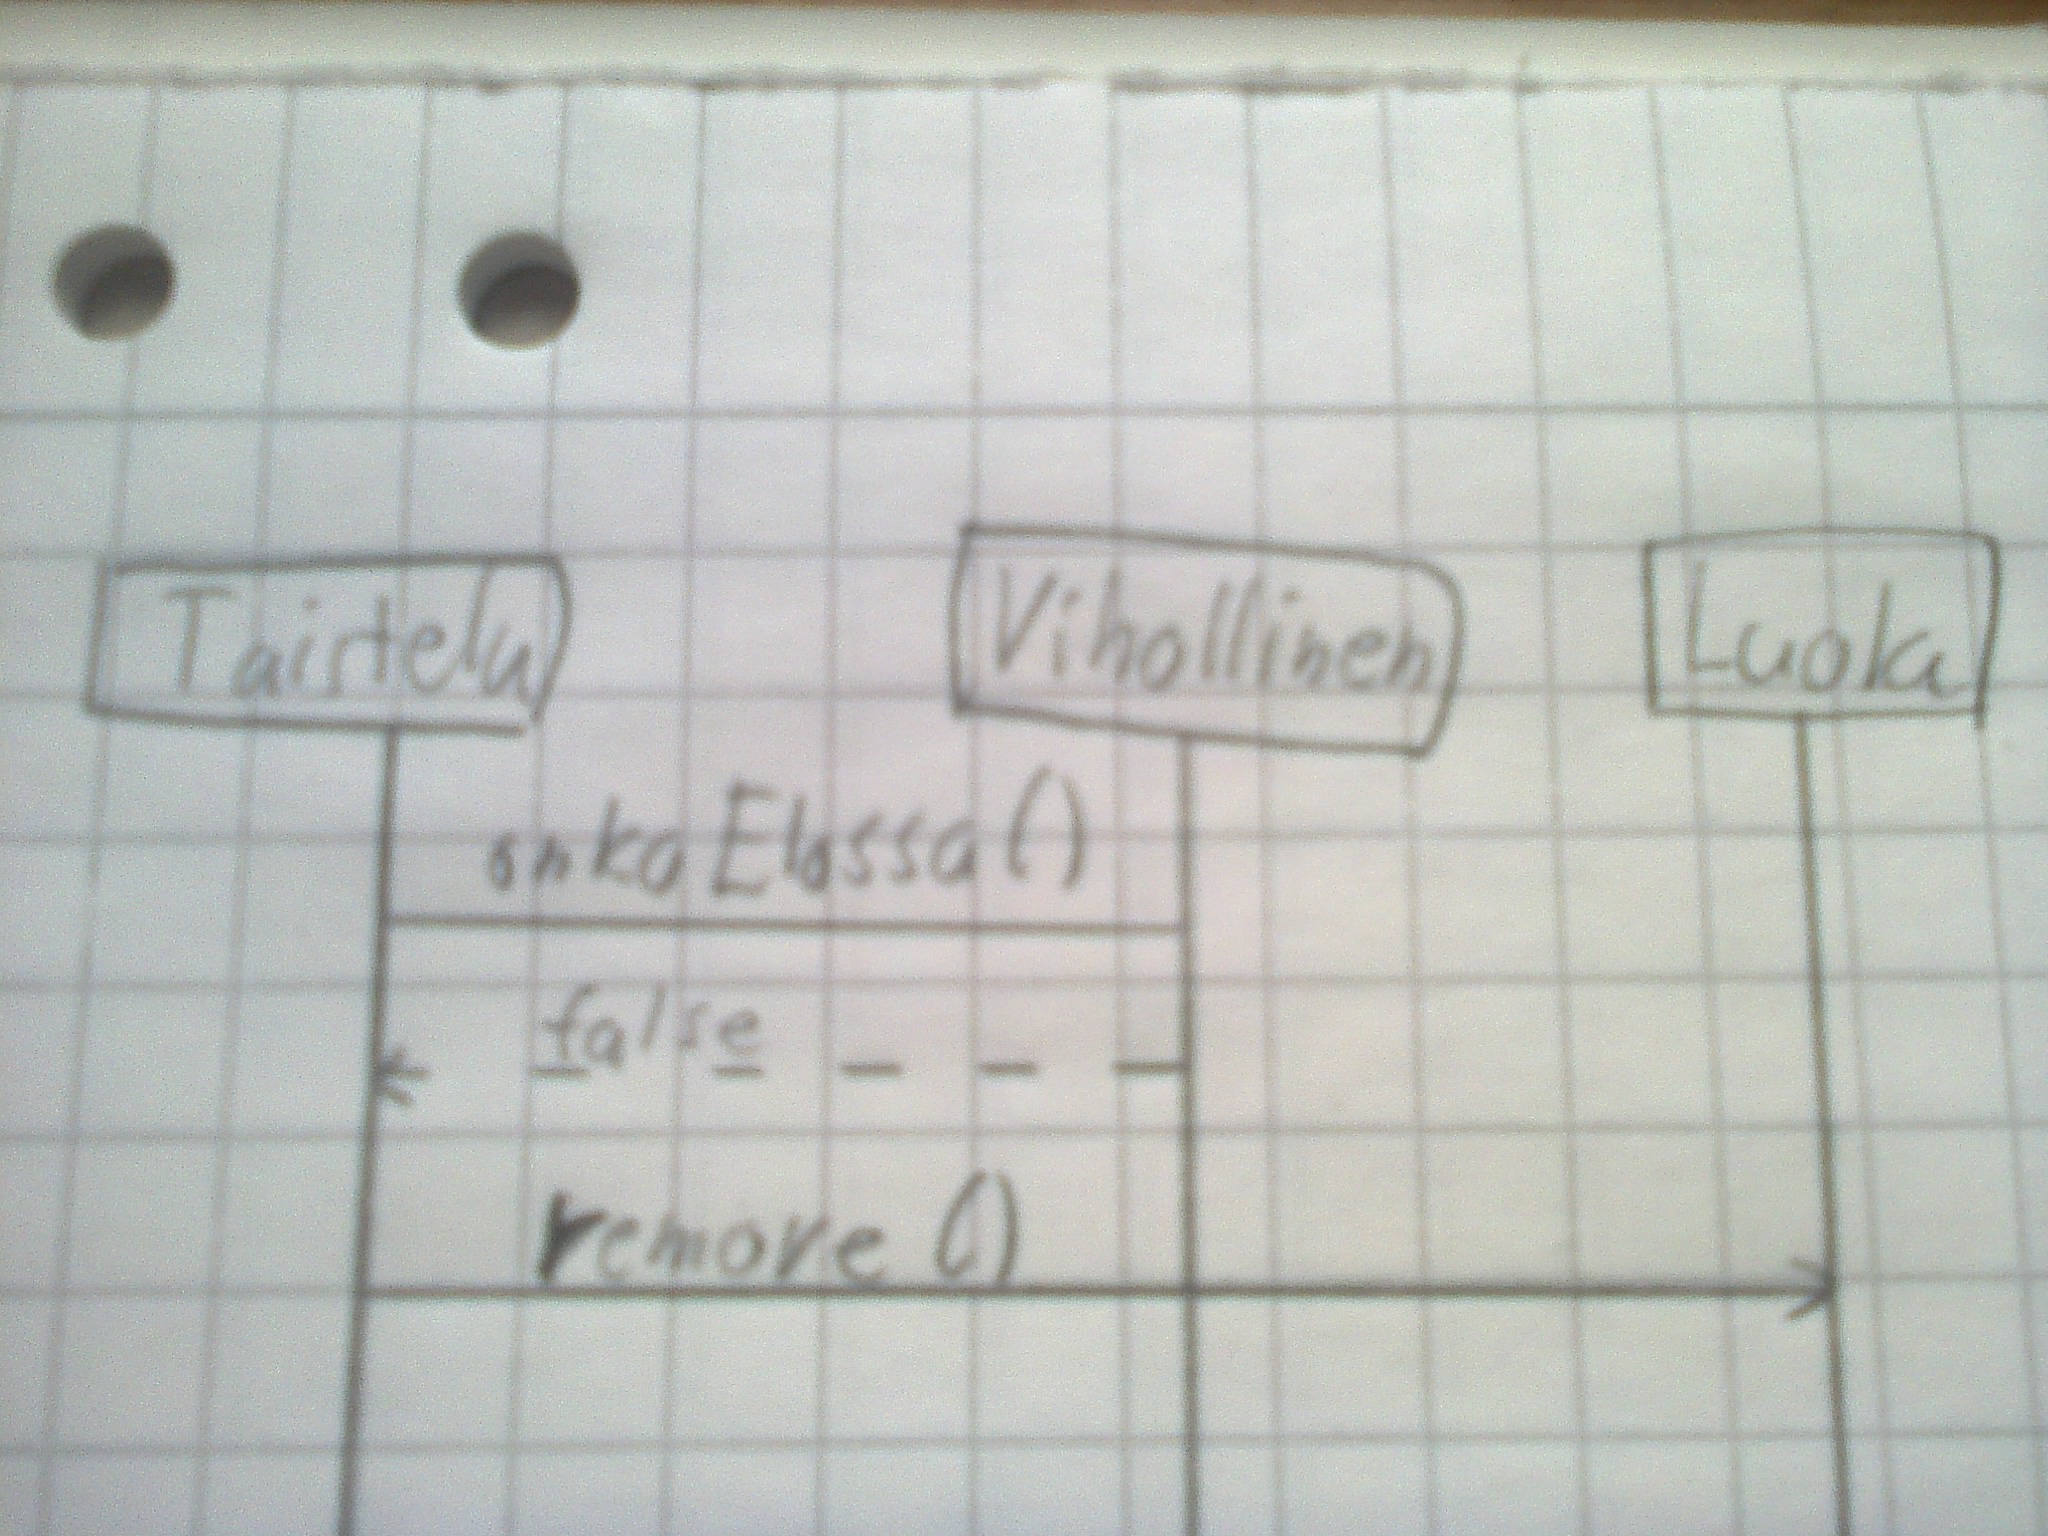 Taistelu Vihollinen Luola
onkoElossa()
false
remove()